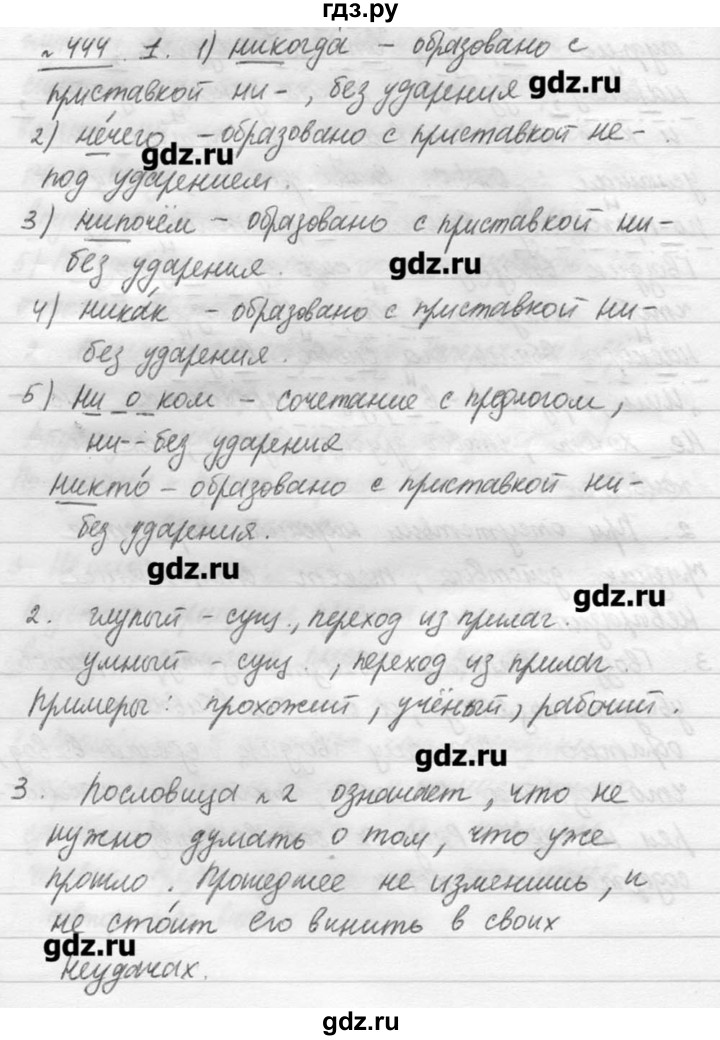 гдз.ру
№ 444. 1. 1) никогда́ – образовано с
приставкой ни-, без ударения
gdz.ru
2) не́чего – образовано с приставкой не-.
gdz.ru
под ударением.
3) нипочём – образовано с приставкой ни-
без ударения.
gdz.ru
4) ника́к – образовано с приставкой ни-
без ударения.
5) ни о ком – сочетание с предлогом,
ни-- без ударения
никто́ – образовано с приставкой ни-
без ударения.
gdz.ru
gdz.ru
2. глупый – сущ., переход из прилаг.
умный – сущ., переход из прилаг
Примеры: прохожий, учёный, рабочий.
gdz.ru
3. Пословица №2 означает, что не
нужно думать о том, что уже
прошло. Прошедшее не изменишь, и
не сто́ит его винить в своих
gdz.ru
неудачах.
gdz.ru